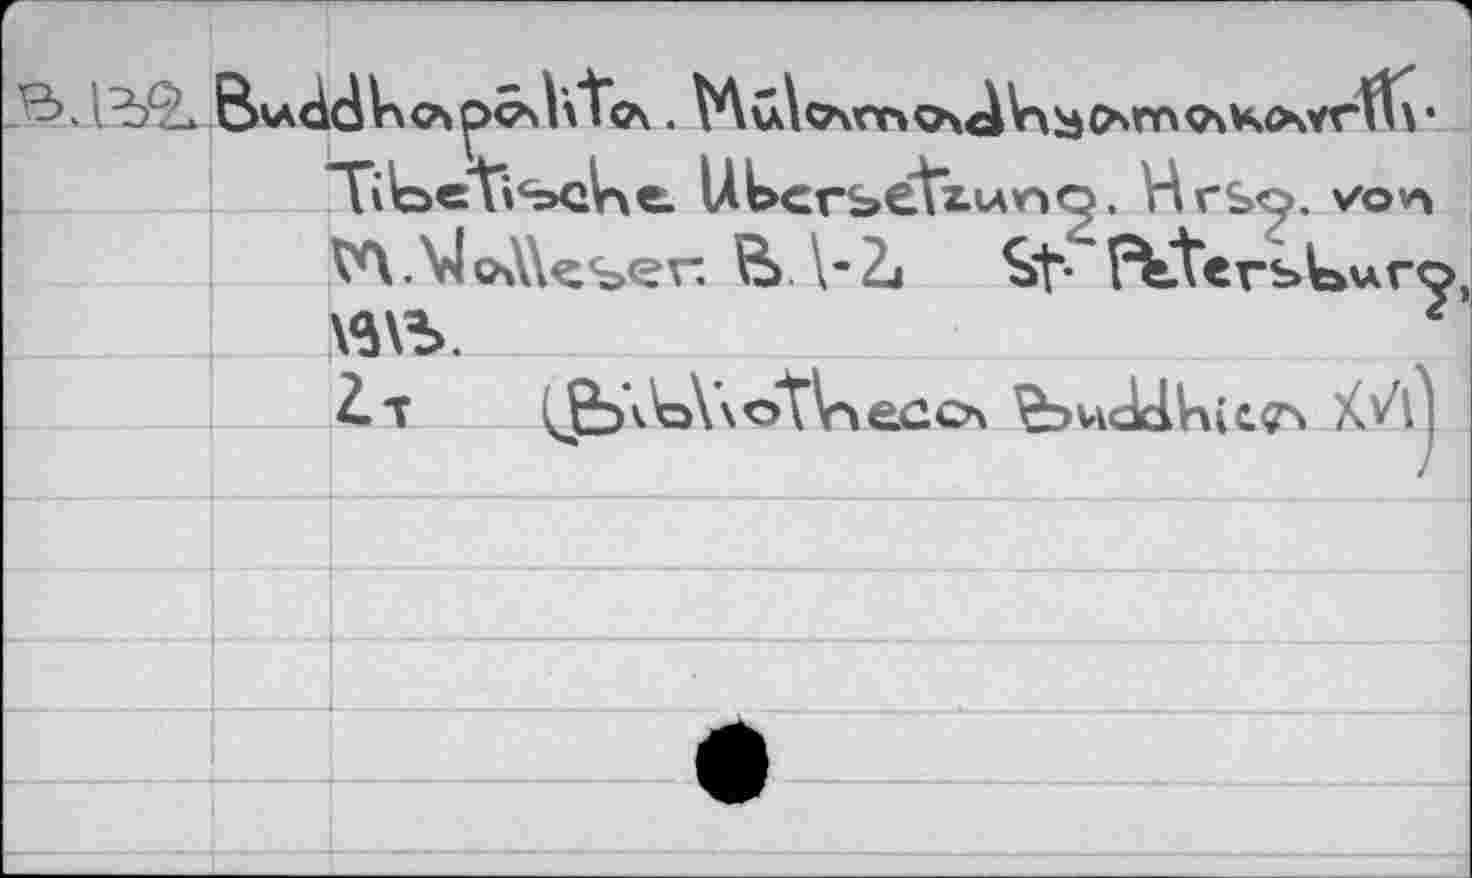 B.132. Buddhapālita. Mūlamadhyamakavrtti.
Tibetische Übersetzung. Hrsg. von
M. Walleser. B. 1-2, St. Petersburg,
1913.
2 т (Bibliotheca Buddhica XVI)